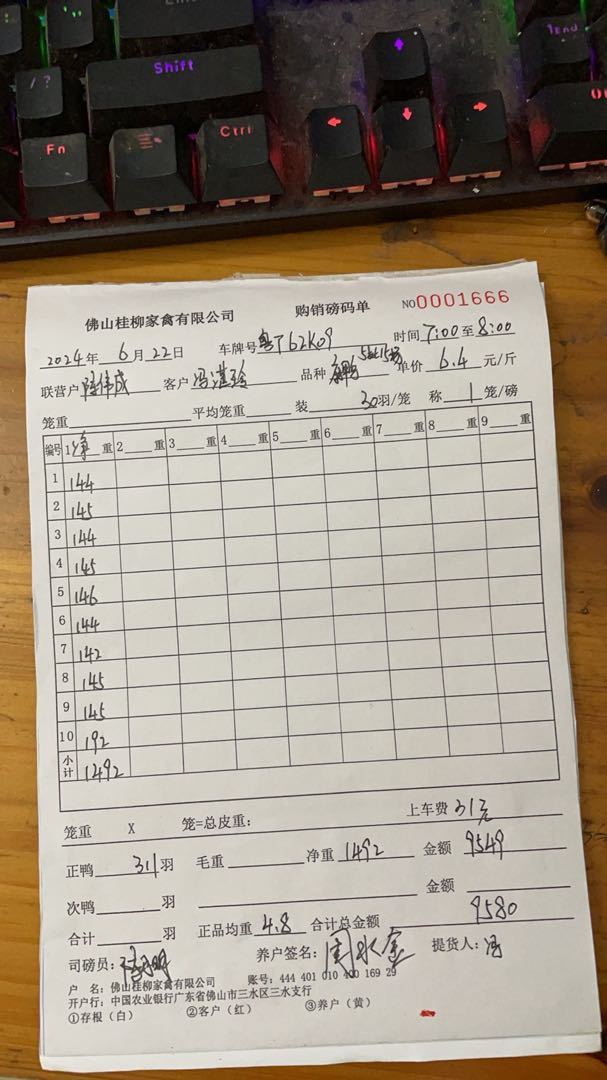 / ?
Shift
Enter
Fn
Ctrl
End
佛山桂柳家禽有限公司 购销磅码单 NO0001666
2024年 6月22日 车牌号粤T62K09 时间7:00至8:00
联营户陆伟成 客户冯湛玲 品种 单价 6.4 元/斤
笼重 平均笼重 装 30羽/笼 称 1 笼/磅
编号 1净重 2 重 3 重 4 重 5 重 6 重 7 重 8 重 9 重
1 144
2 145
3 144
4 145
5 146
6 144
7 142
8 145
9 145
10 192
小计 1492
笼重 X 笼=总皮重: 上车费 31元
正鸭 311羽 毛重 净重 1492 金额 9549
次鸭 羽 金额
合计 羽 正品均重 4.8 合计总金额 9580
司磅员: 养户签名: 提货人:冯
户 名:佛山桂柳家禽有限公司 账号:444 401 010 400 169 29
开户行:中国农业银行广东省佛山市三水区三水支行
①存根(白) ②客户(红) ③养户(黄)